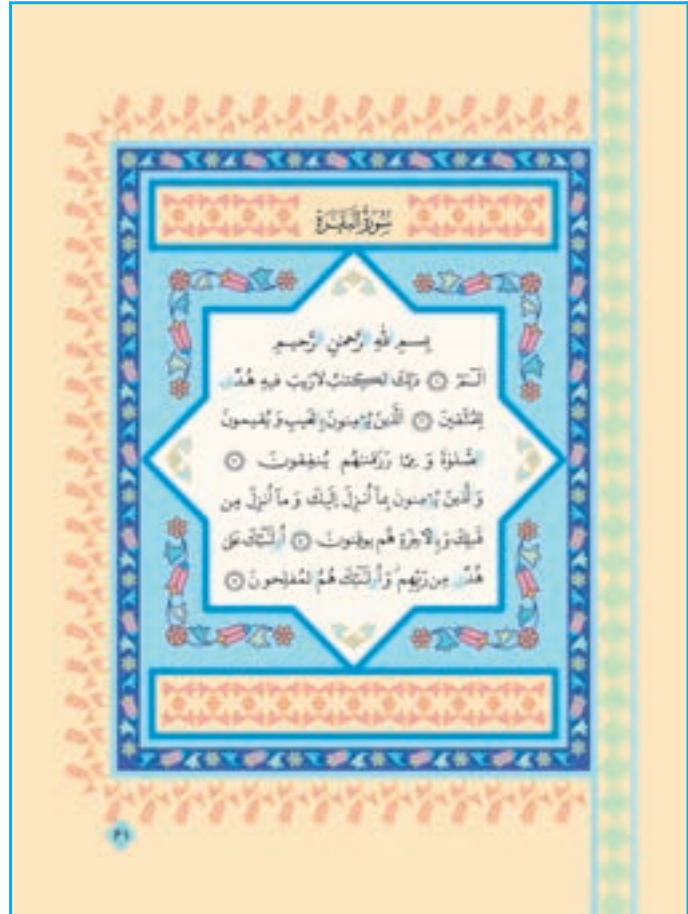 سُورَةُ الْبَقَرَةِ
بِسمِ اللهِ الرَّحمٰنِ الرَّحيمِ
الٓـمٓ ۱ ذٰلِكَ الكِتٰبُ لا رَيبَ فيهِ هُدًى
لِلمُتَّقينَ ۲ اَلَّذينَ يُؤمِنونَ بِالغَيبِ وَ يُقيمونَ
الصَّلوٰةَ وَ مِمّا رَزَقنٰهُم يُنفِقونَ ۳
وَ الَّذينَ يُؤمِنونَ بِمآ أُنزِلَ إِلَيكَ وَ مآ أُنزِلَ مِن
قَبلِكَ وَ بِالاٰخِرَةِ هُم يوقِنونَ ۴ أُولٰٓئِكَ عَلىٰ
هُدًى مِن رَبِّهِم وَ أُولٰٓئِكَ هُمُ المُفلِحونَ ۵
۴۱